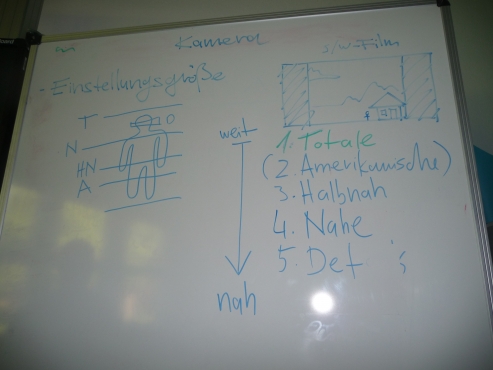 Kamera
s/w-Film
- Einstellungsgröße
T
D
N
HN
A
weit
nah
1. Totale
(2. Amerikanische)
3. Halbnah
4. Nahe
5. Det